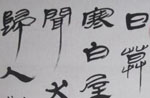 日暮
寒白屋
聞犬
歸人